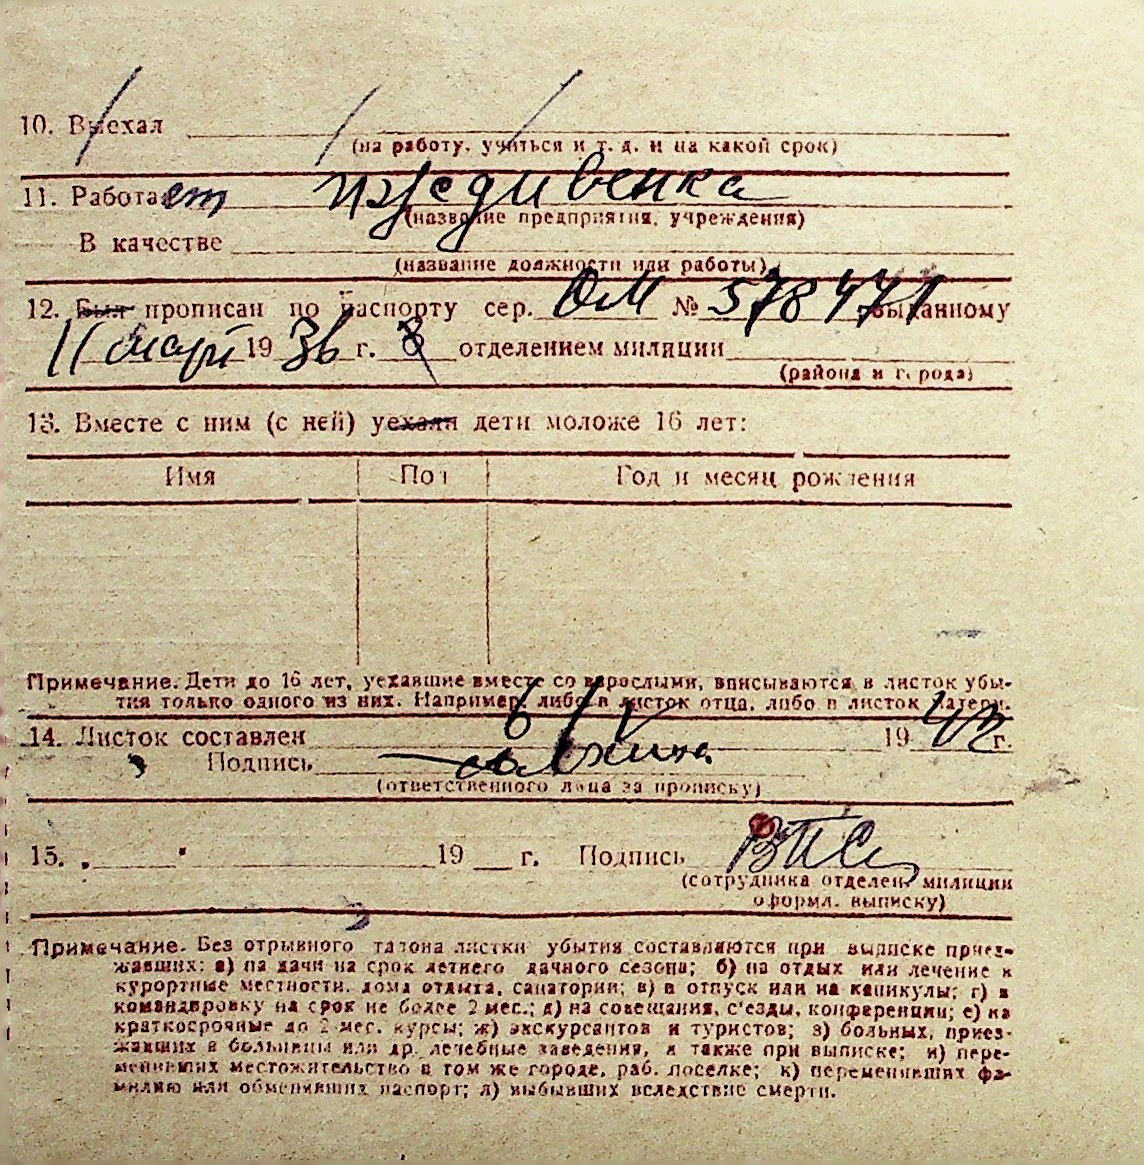 10. Выехал
(на работу, учиться и т. д. и на какой срок)
11. Работает иждивенка
(название предприятия, учреждения)
В качестве
(название должности или работы)
12. Был прописан по паспорту сер. ОМ № 578471 выданному
11 март 1936 г. 8 отделением милиции
(района и города)
13. Вместе с ним (с ней) уехали дети моложе 16 лет:
Имя Пол Год и месяц рождения
Примечание. Дети до 16 лет, уехавшие вместе со взрослыми, вписываются в листок убы-
тия только одного из них. Например, либо в листок отца, либо в листок матери.
14. Листок составлен 6/V 1942 г.
Подпись
(ответственного лица за прописку)
15. „ " 19 г. Подпись
(сотрудника отделен. милиции
оформл. выписку)
Примечание. Без отрывного талона листки убытия составляются при выписке приез-
жавших: а) на дачи на срок летнего дачного сезона; б) на отдых или лечение в
курортные местности, дома отдыха, санатории; в) в отпуск или на каникулы; г) в
командировку на срок не более 2 мес.; д) на совещания, с'езды, конференции; е) на
краткосрочные до 2 мес. курсы; ж) экскурсантов и туристов; з) больных, приез-
жавших в больницы или др. лечебные заведения, а также при выписке; и) пере-
менивших местожительство в том же городе, раб. поселке; к) переменивших фа-
милию или обменивших паспорт; л) выбывших вследствие смерти.